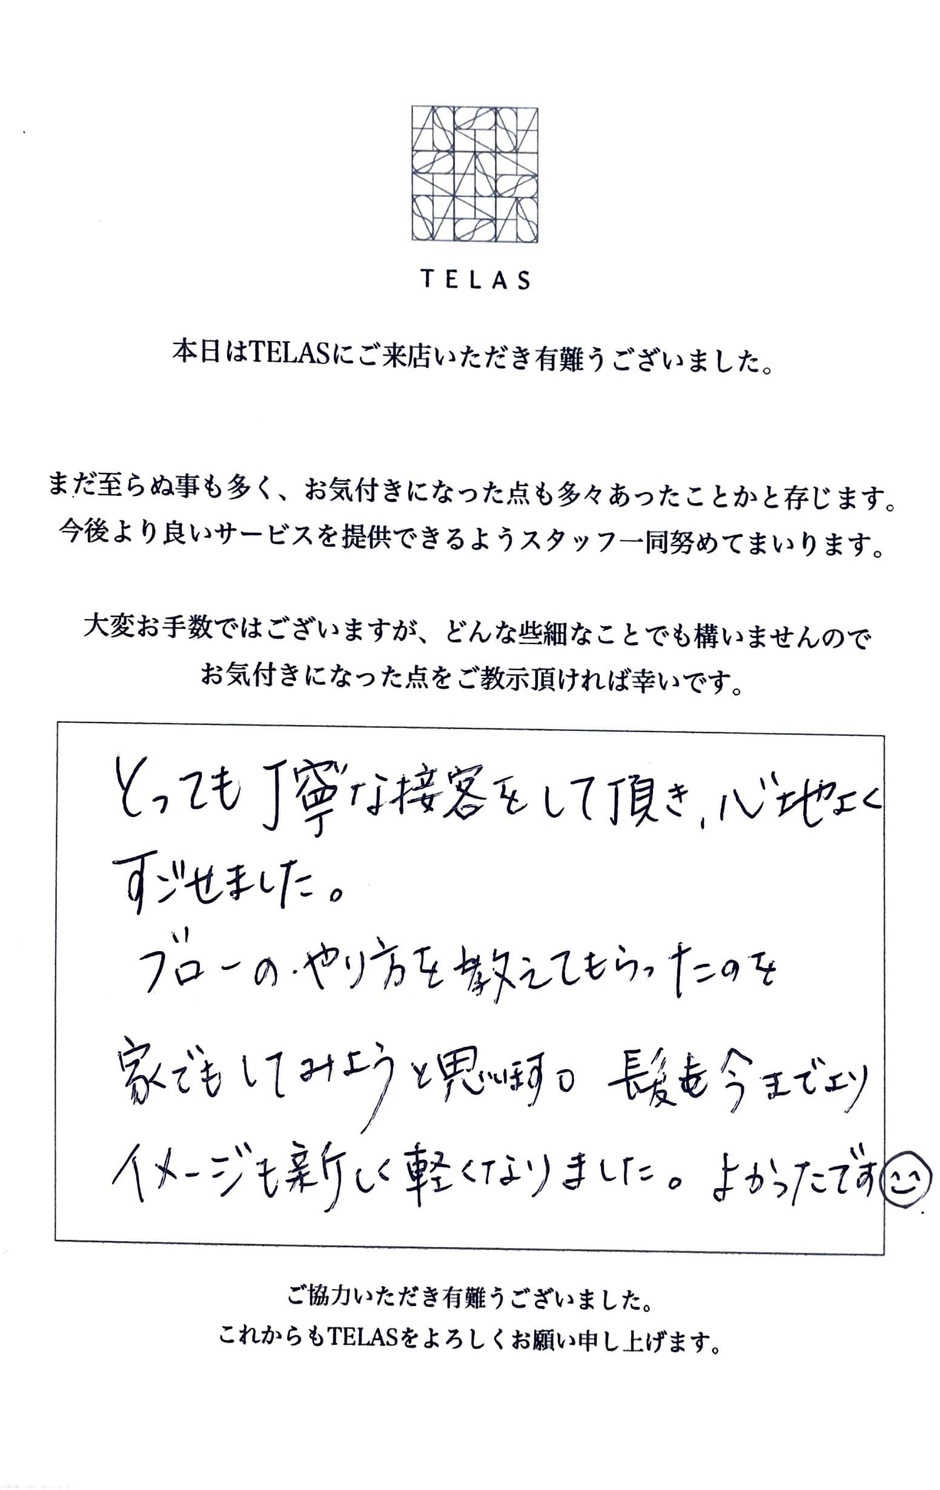 TELAS
本日はTELASにご来店いただき有難うございました。
まだ至らぬ事も多く、お気付きになった点も多々あったことかと存じます。
今後より良いサービスを提供できるようスタッフ一同努めてまいります。
大変お手数ではございますが、どんな些細なことでも構いませんので
お気付きになった点をご教示頂ければ幸いです。
とっても丁寧な接客をして頂き、心地よく
すごせました。
ブローのやり方を教えてもらったのを
家でもしてみようと思います。髪も今までより
イメージも新しく軽くなりました。よかったです
ご協力いただき有難うございました。
これからもTELASをよろしくお願い申し上げます。